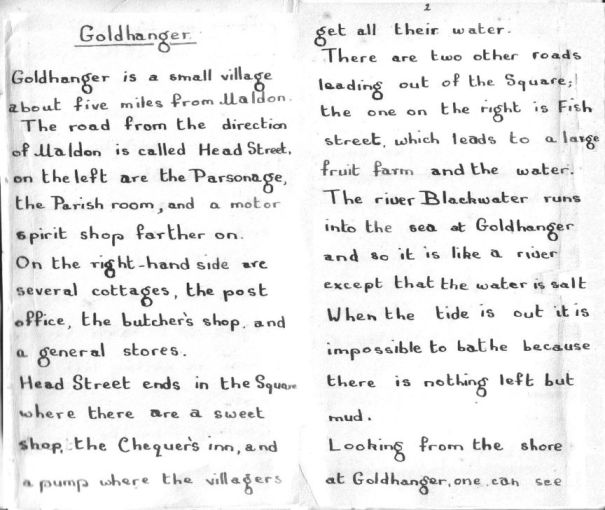 Goldhanger
Goldhanger is a small village
about five miles from Maldon.
The road from the direction
of Maldon is called Head Street,
on the left are the Parsonage,
the Parish room, and a motor
spirit shop farther on.
On the right-hand side are
several cottages, the post
office, the butcher's shop, and
a general stores.
Head Street ends in the Square
where there are a sweet
shop, the Chequer's inn, and
a pump where the villagers
2
get all their water.
There are two other roads
leading out of the Square;
the one on the right is Fish
street, which leads to a large
fruit farm and the water.
The river Blackwater runs
into the sea at Goldhanger
and so it is like a river
except that the water is salt
When the tide is out it is
impossible to bathe because
there is nothing left but
mud.
Looking from the shore
at Goldhanger, one can see